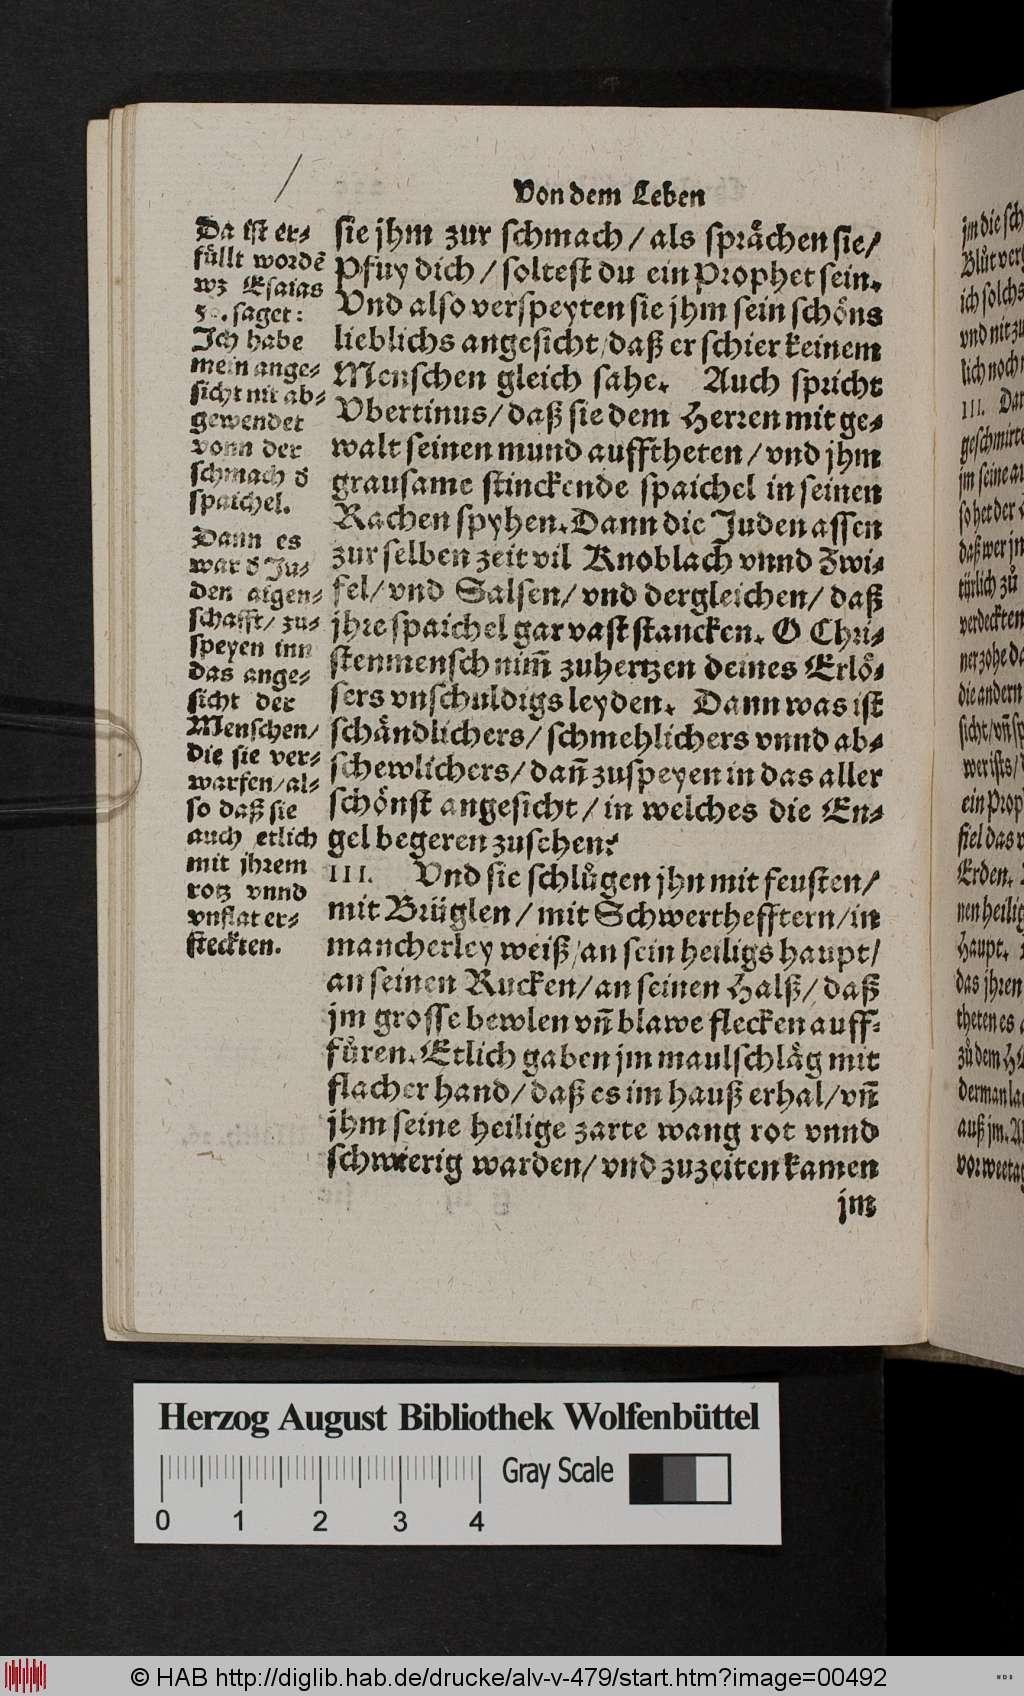 Von dem Leben
Da ist er-
füllt wordē
wz Esaias
saget:
Ich habe
mein ange-
sicht nit ab-
gewendet
vonn der
schmach d
spaichel.
Dann es
war d Ju-
den aigen-
schafft/ zu-
speyen inn
das ange-
sicht der
Menschen/
die sie ver-
warfen/al-
so daß sie
auch etlich
mit jhrem
rotz vnnd
vnflat er-
steckten.
sie jhm zur schmach / als sprächen sie/
Pfuy dich / soltest du ein Prophet sein.
Vnd also verspeyten sie jhm sein schöns
lieblichs angesicht/daß er schier keinem
Menschen gleich sahe. Auch spricht
Vbertinus/ daß sie dem Herren mit ge-
walt seinen mund aufftheten / vnd jhm
grausame stinckende spaichel in seinen
Rachen spyhen. Dann die Juden assen
zur selben zeit vil Knoblach vnnd Zwi-
fel/ vnd Salsen/ vnd dergleichen/ daß
jhre spaichel gar vast stancken. O Chri-
stenmensch nim̄ zuhertzen deines Erlö-
sers vnschuldigs leyden. Dann was ist
schändlichers/ schmehlichers vnnd ab-
schewlichers/ dañ zuspeyen in das aller
schönst angesicht / in welches die En-
gel begeren zusehen?
III. Vnd sie schlůgen jhn mit feusten/
mit Brüglen / mit Schwerthefftern/in
mancherley weiß/an sein heiligs haupt/
an seinen Rucken/ an seinen Halß/ daß
jm grosse bewlen vñ blawe flecken auff-
fůren. Etlich gaben jm maulschläg mit
flacher hand/ daß es im hauß erhal/ vñ
jhm seine heilige zarte wang rot vnnd
schwierig warden/ vnd zuzeiten kamen
jm
jm die sch
Blůt ver
ich solchs
vnd nit zu
lich noch
III. Dar
geschmirte
jm seine
so het der
daß wer jm
türlich zů
verdeckten
ner zohe da
die andern
sicht/ vñ sp
wer ists/
ein Prop
fiel das
Erden.
nen heilig
Haupt.
das jhren
theten es
zů dem
derman
auß jm.
vor weetag
Herzog August Bibliothek Wolfenbüttel
Gray Scale
0 1 2 3 4
© HAB http://diglib.hab.de/drucke/alv-v-479/start.htm?image=00492